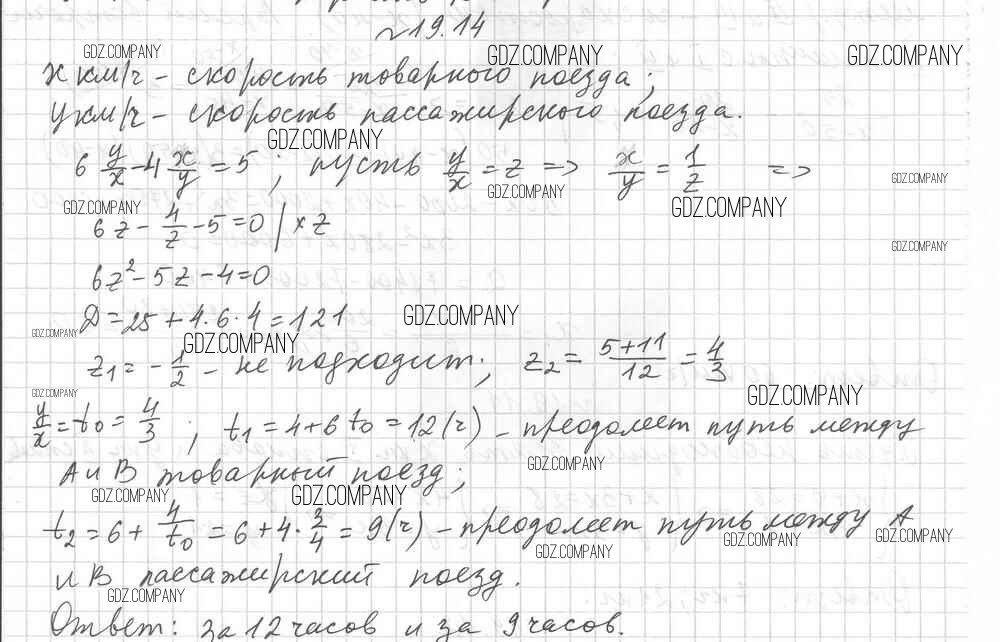 №19.14
GDZ.COMPANY GDZ.COMPANY GDZ.COMPANY
x км/ч – скорость товарного поезда;
y км/ч – скорость пассажирского поезда.
GDZ.COMPANY
6 y/x - 4 x/y = 5 ; пусть y/x = z => x/y = 1/z =>
GDZ.COMPANY GDZ.COMPANY
GDZ.COMPANY GDZ.COMPANY
6z - 4/z - 5 = 0 | × z
GDZ.COMPANY
6z² - 5z - 4 = 0
D = 25 + 4·6·4 = 121
GDZ.COMPANY
GDZ.COMPANY GDZ.COMPANY
z₁ = - 1/2 – не подходит; z₂ = (5+11)/12 = 4/3
GDZ.COMPANY GDZ.COMPANY
y/x = t₀ = 4/3 ; t₁ = 4 + 6 t₀ = 12 (ч) – преодолеет путь между
А и В товарный поезд;
GDZ.COMPANY
GDZ.COMPANY GDZ.COMPANY
t₂ = 6 + 4/t₀ = 6 + 4 · 3/4 = 9 (ч) – преодолеет путь между А
GDZ.COMPANY GDZ.COMPANY GDZ.COMPANY
и В пассажирский поезд.
GDZ.COMPANY
Ответ: за 12 часов и за 9 часов.